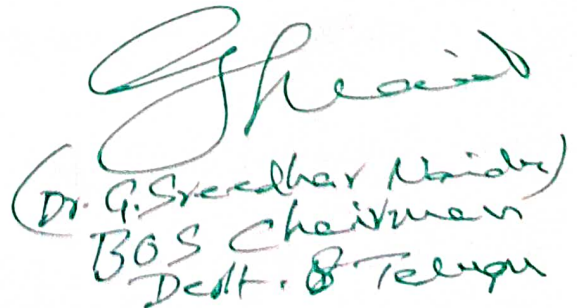 (Dr. G. Sreedhar Naidu)
BOS Chairman
Deptt. of Telugu